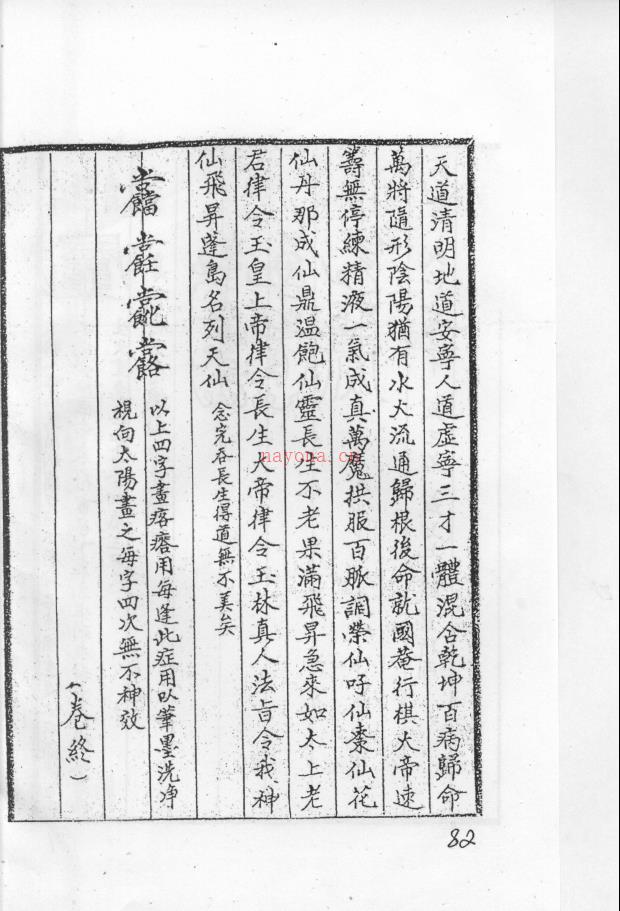 天道清明地道安寧人道虛寧三才一體混合乾坤百病歸命
萬將隨形陰陽猶有水火流通歸根後命就國菴行棋大帝速
壽無停練精液一氣成真萬魔拱服百脈調榮仙呼仙棗仙花
仙丹那成仙鼎溫飽仙靈長生不老果滿飛昇急來如太上老
君律令玉皇上帝律令長生大帝律令玉林真人法旨令我神
仙飛昇蓬島名列天仙
念完吞長生得道無不美矣
以上四字畫痞瘩用每逢此症用以筆墨洗净
視向太陽畫之每字四次無不神效
(卷終)
82
nayona.cn